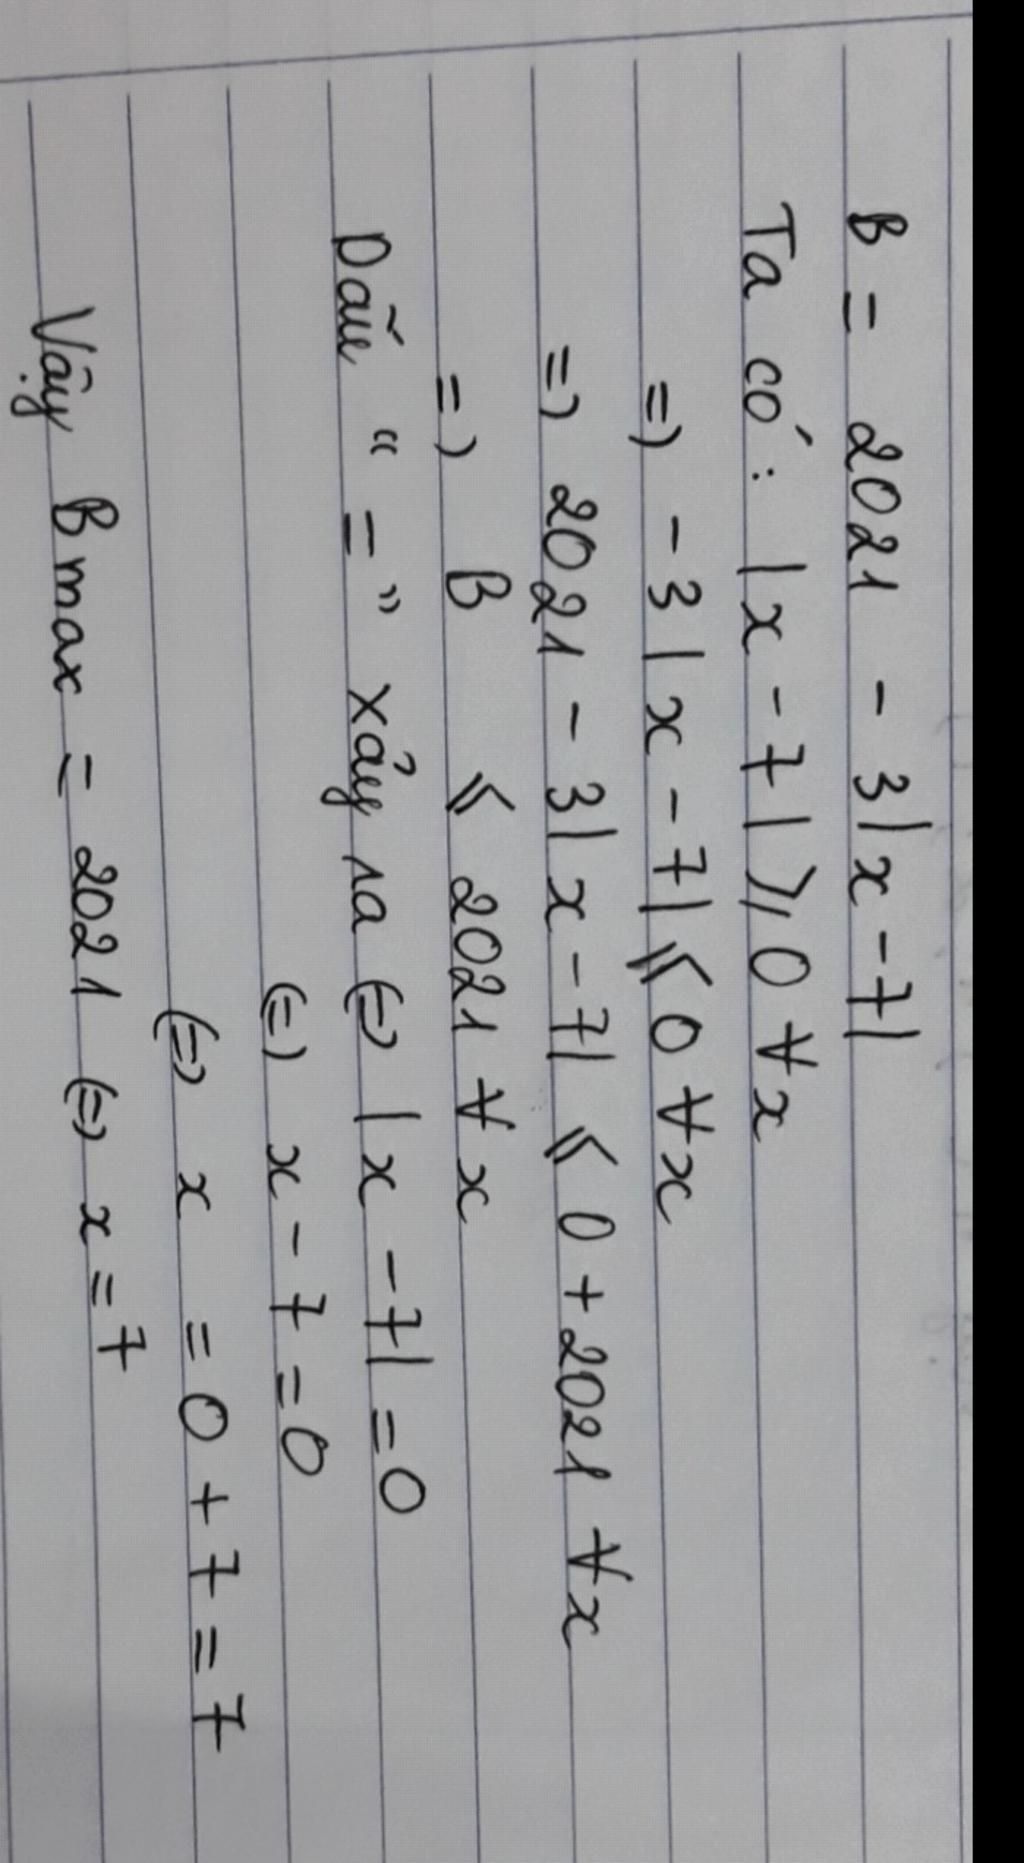 B = 2021 - 3|x - 7|
Ta có: |x - 7| ⩾ 0 ∀x
=) -3|x - 7| ⩽ 0 ∀x
=) 2021 - 3|x - 7| ⩽ 0 + 2021 ∀x
=) B ⩽ 2021 ∀x
Dấu " = " xảy ra (=) |x - 7| = 0
(=) x - 7 = 0
(=) x = 0 + 7 = 7
Vậy Bmax = 2021 (=) x = 7